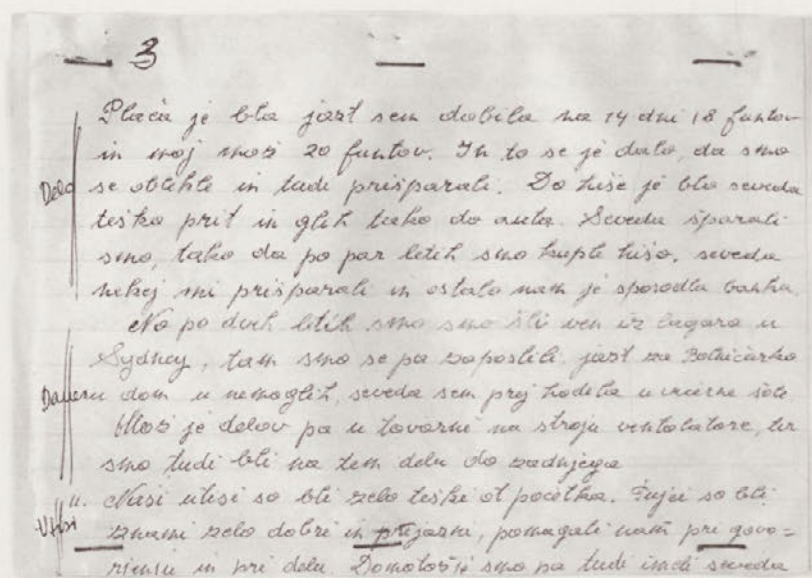 3
Plača je bla jast sem dobila na 14 dni 18 funtov
in moj mož 20 funtov. In to se je dalo, da smo
Delo
se oblekle in tudi prišparali. Do hiše je blo seveda
teško prit in glih tako do auta. Seveda šparali
smo, tako da po par letih smo kuple hišo, seveda
nekej mi prišparali in ostalo nam je sposodla banka.
No po dveh letih smo smo šli ven iz lagara u
Sydney, tam smo se pa zaposlili jast za Bolničarko
u dom u nemoglih, seveda sem prej hodila u vučerne šole
Mož je delov pa u tovarni na stroju ventolatore, ter
smo tudi bli na tem delu do zadnjega
Utisi
11. Naši utisi so bli zelo teški ot početka. Tujci so bli
znami zelo dobri in prijazni, pomagali nam pri govo=
rjenju in pri delu. Domotožje smo pa tudi imeli seveda